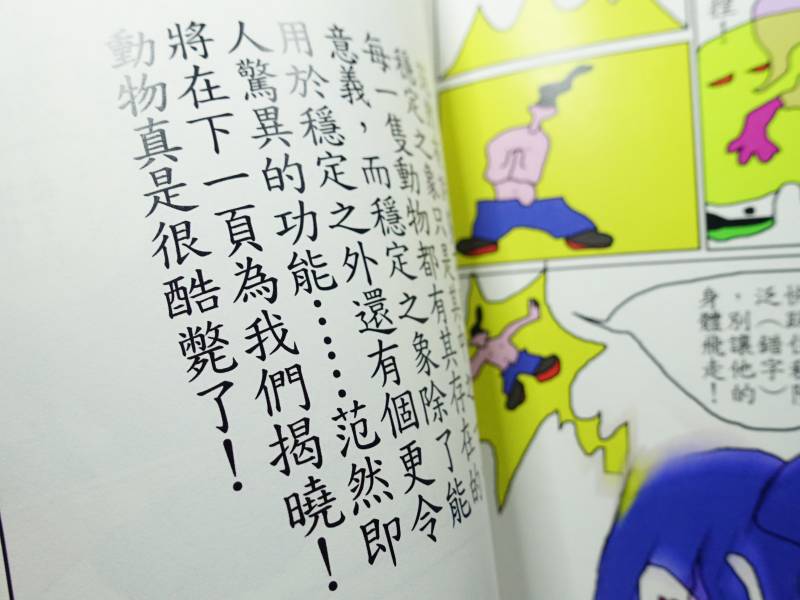 穩定之象只是其
每一隻動物都有其存在的
意義，而穩定之象除了能
用於穩定之外還有個更令
人驚異的功能……范然即
將在下一頁為我們揭曉！
動物真是很酷斃了！
裡！
泛（錯字）
，別讓他的
身體飛走！